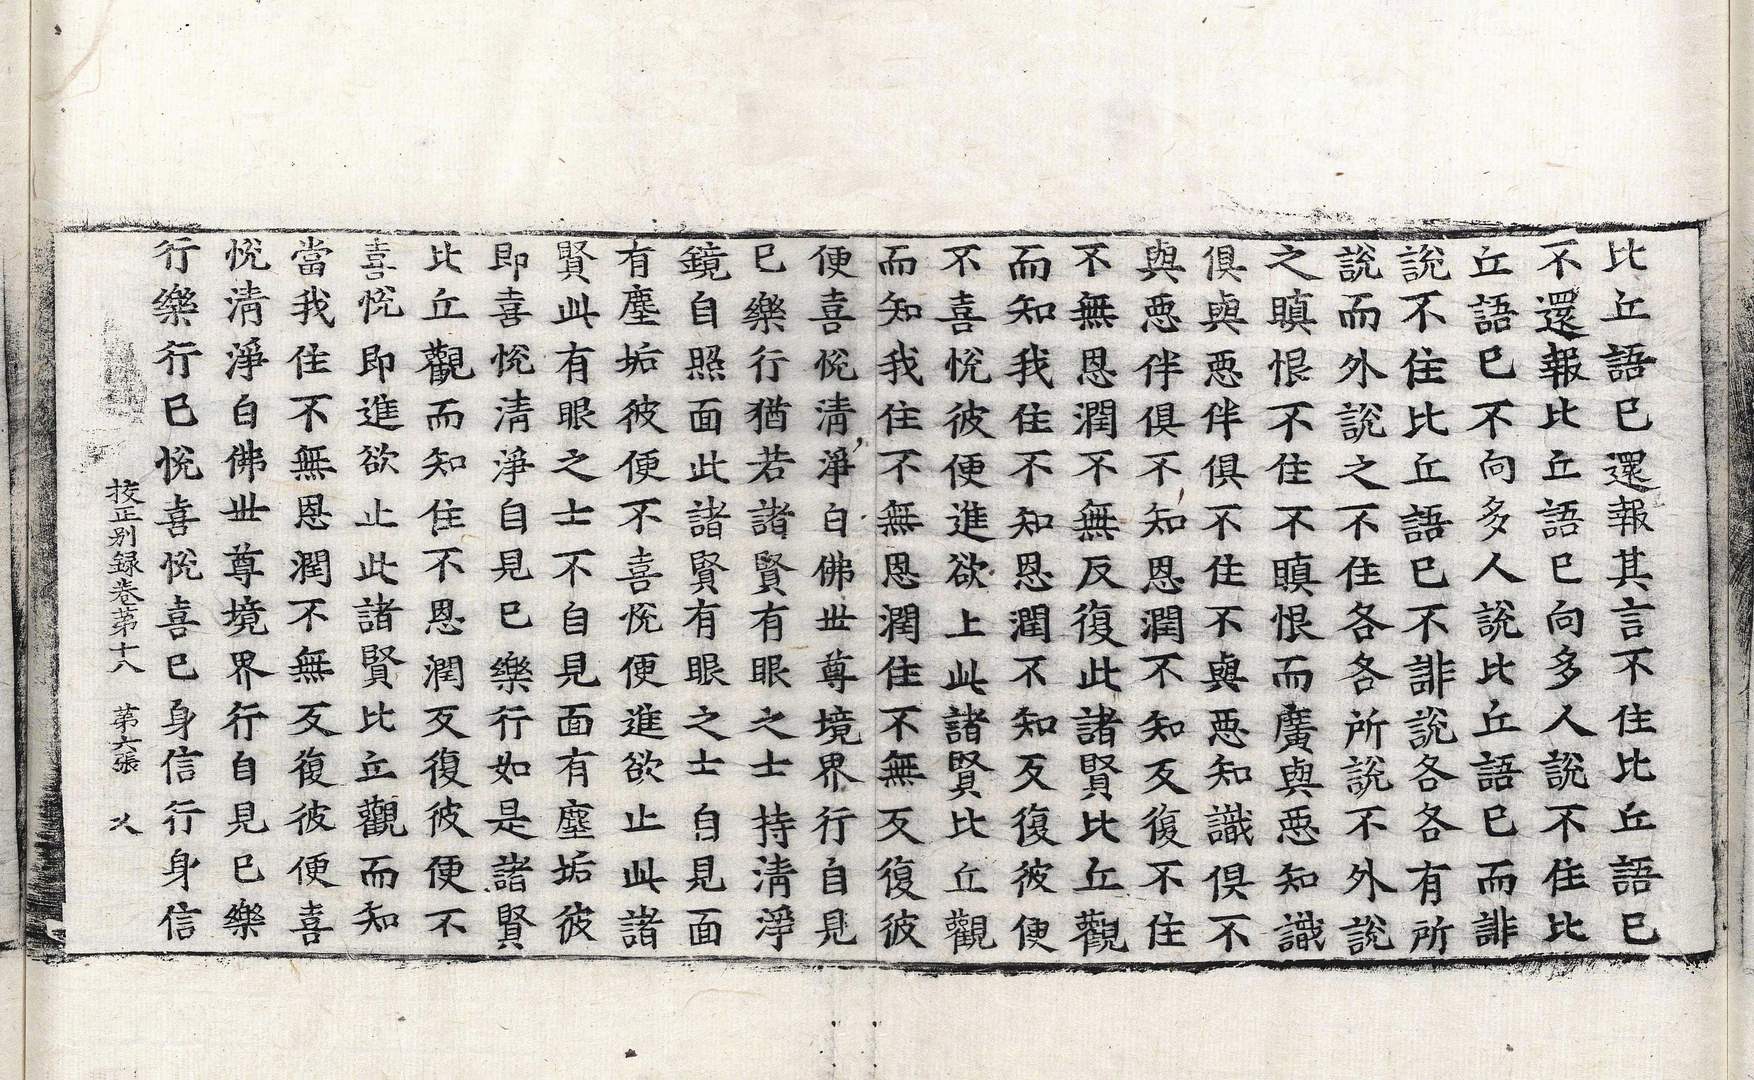 比丘語已還報其言不住比丘語已
不還報比丘語已向多人說不住比
丘語已不向多人說比丘語已而誹
說不住比丘語已不誹說各各有所
說而外說之不住各各所說不外說
之瞋恨不住不瞋恨而廣與悪知識
俱與悪伴俱不住不與悪知識俱不
與悪伴俱不知恩潤不知反復不住
不無恩潤不無反復此諸賢比丘觀
而知我住不知恩潤不知反復彼便
不喜悅彼便進欲上此諸賢比丘觀
而知我住不無恩潤住不無反復彼
便喜悅清淨白佛世尊境界行自見
已樂行猶若諸賢有眼之士持清淨
鏡自照面此諸賢有眼之士自見面
有塵垢彼便不喜悅便進欲止此諸
賢此有眼之士不自見面有塵垢彼
即喜悅清淨自見已樂行如是諸賢
比丘觀而知住不恩潤反復彼便不
喜悅即進欲止此諸賢比丘觀而知
當我住不無恩潤不無反復彼便喜
悅清淨白佛世尊境界行自見已樂
行樂行已悅喜悅喜已身信行身信
校正别録卷第十八 第六張